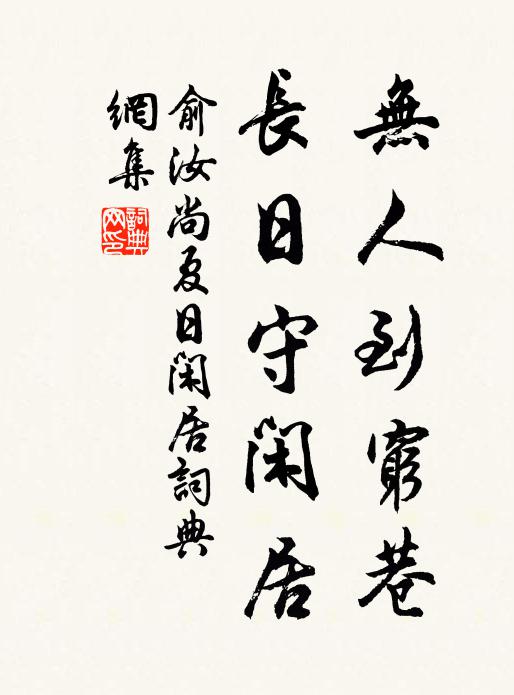 無人到窮巷
長日守閑居
俞汝尚夏日閑居詞典
網集
詞典网印